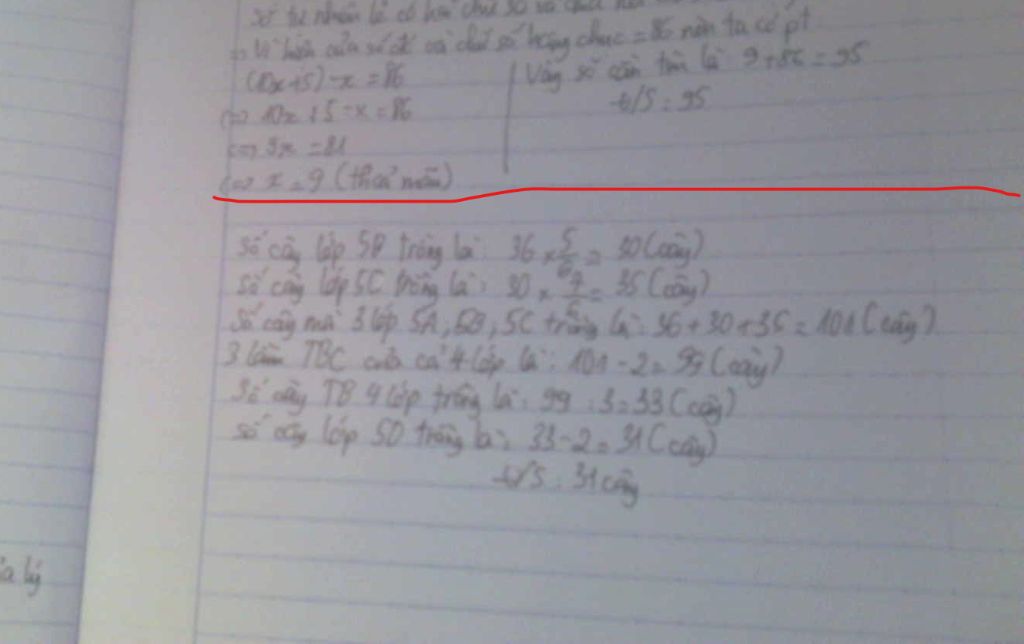 số tự nhiên lẻ có hai chữ số và chia hết
=> Vì hiệu của số đó và chữ số hàng chục = 86 nên ta có pt
(10x+5) - x = 86
<=> 10x + 5 - x = 86
<=> 9x = 81
<=> x = 9 (thoả mãn)
Vậy số cần tìm là: 9+86 = 95
Đ/S: 95
Số cây lớp 5B trồng là: 36 × 5/6 = 30 (cây)
Số cây lớp 5C trồng là: 30 × 7/6 = 35 (cây)
Số cây mà 3 lớp 5A, 5B, 5C trồng là: 36 + 30 + 35 = 101 (cây)
3 lần TBC của cả 4 lớp là: 101 - 2 = 99 (cây)
Số cây TB 4 lớp trồng là: 99 : 3 = 33 (cây)
Số cây lớp 5D trồng là: 33 - 2 = 31 (cây)
Đ/S: 31 cây
lý